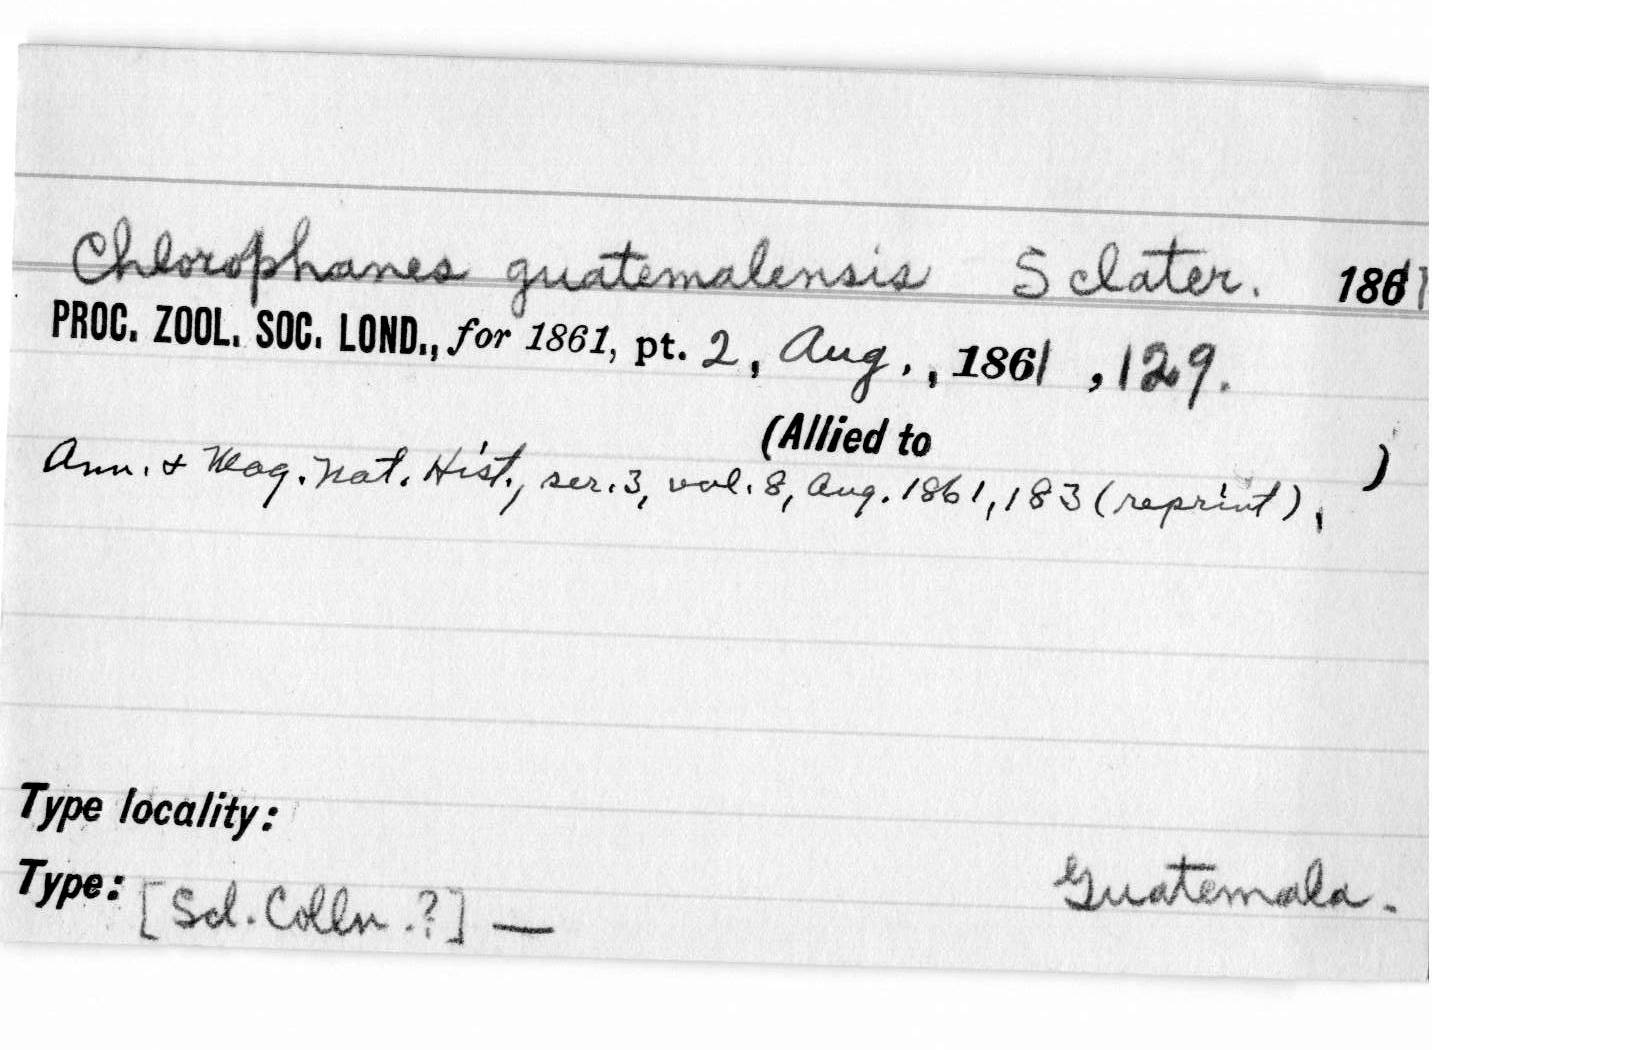 Chlorophanes guatemalensis Sclater. 1861
PROC. ZOOL. SOC. LOND., for 1861, pt. 2, Aug., , 1861 , 129.
(Allied to )
Ann. & Mag. Nat. Hist., ser. 3, vol. 8, Aug. 1861, 183 (reprint),
Type locality:
Guatemala.
Type: [Scl. Colln. ?] —